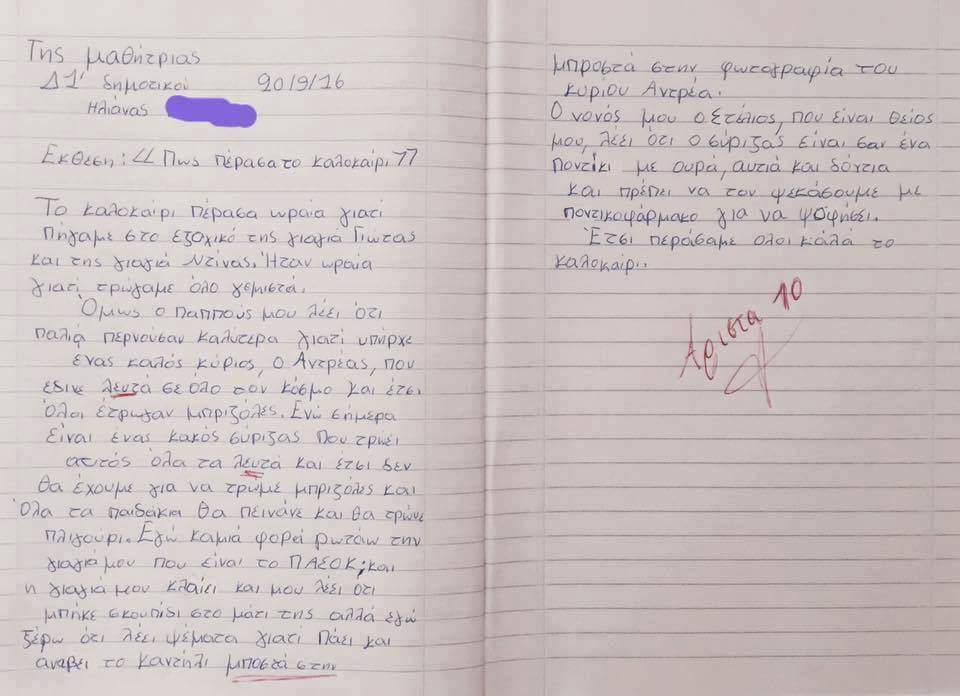 Της μαθήτριας
Δ1' δημοτικού 20/9/16
Ηλιάνας
Εκθεση: "Πως πέρασα το καλοκαίρι"
Το καλοκαίρι πέρασα ωραία γιατί
πήγαμε στο εξοχικό της γιαγιά Γιώτας
και της γιαγιά Ντίνας. Ήταν ωραία
γιατί τρώγαμε όλο γεμιστά.
Όμως ο παππούς μου λέει ότι
παλιά περνούσαν καλύτερα γιατί υπήρχε
ένας καλός κύριος, ο Αντρέας, που
έδινε λευτά σε όλο τον κόσμο και έτσι
όλοι έτρωγαν μπριζόλες. Ενώ σήμερα
είναι ένας κακός σύριζας που τρώει
αυτός όλα τα λευτά και έτσι δεν
θα έχουμε για να τρώμε μπριζόλες και
όλα τα παιδάκια θα πεινάνε και θα τρώνε
πλιγούρι. Εγώ καμιά φορεί ρωτάω την
γιαγιά μου που είναι το ΠΑΣΟΚ; και
η γιαγιά μου κλαίει και μου λέει ότι
μπήκε σκουπίδι στο μάτι της αλλά εγώ
ξέρω ότι λέει ψέματα γιατί πάει και
ανάβει το καντήλι μποστά στην
μπροστά στην φωτογραφία του
κυρίου Αντρέα.
Ο νονός μου ο Στέλιος, που είναι θείος
μου, λέει ότι ο σύριζας είναι σαν ένα
ποντίκι με ουρά, αυτιά και δόντια
και πρέπει να τον ψεκάσουμε με
ποντικοφάρμακο για να ψοφήσει.
Έτσι περάσαμε όλοι καλά το
καλοκαίρι.
Αριστα 10